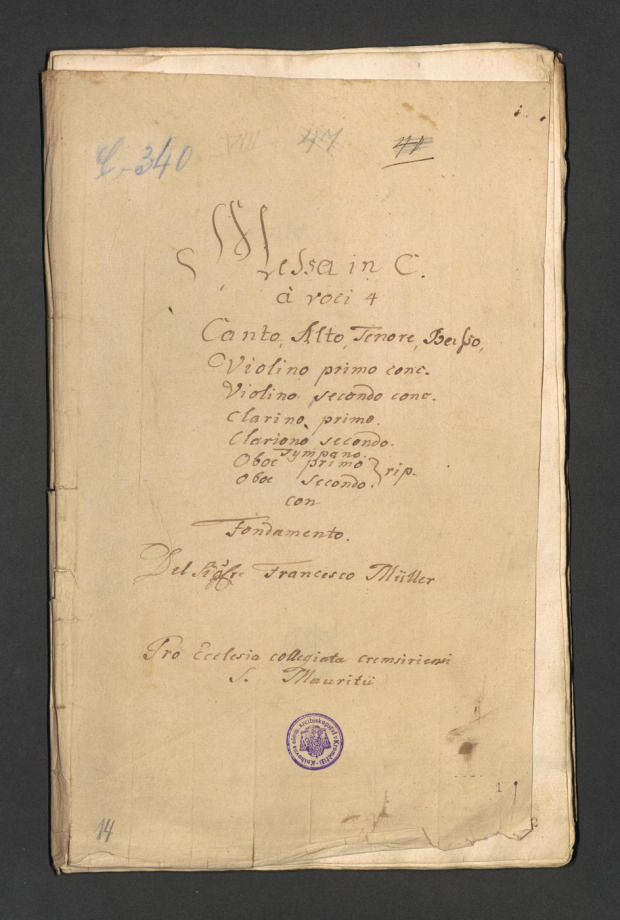 C. 340 VIII 47 44
Messa in C.
à voci 4
Canto, Alto, Tenore, Basso,
Violino primo conc.
Violino secondo conc.
Clarino primo.
Clariono secondo.
Tympano.
Oboe primo
Oboe secondo. rip.
con
Fondamento.
Del Sigre Francesco Müller
Pro Ecclesia collegiata cremsiriensi
S. Mauritii
14
1